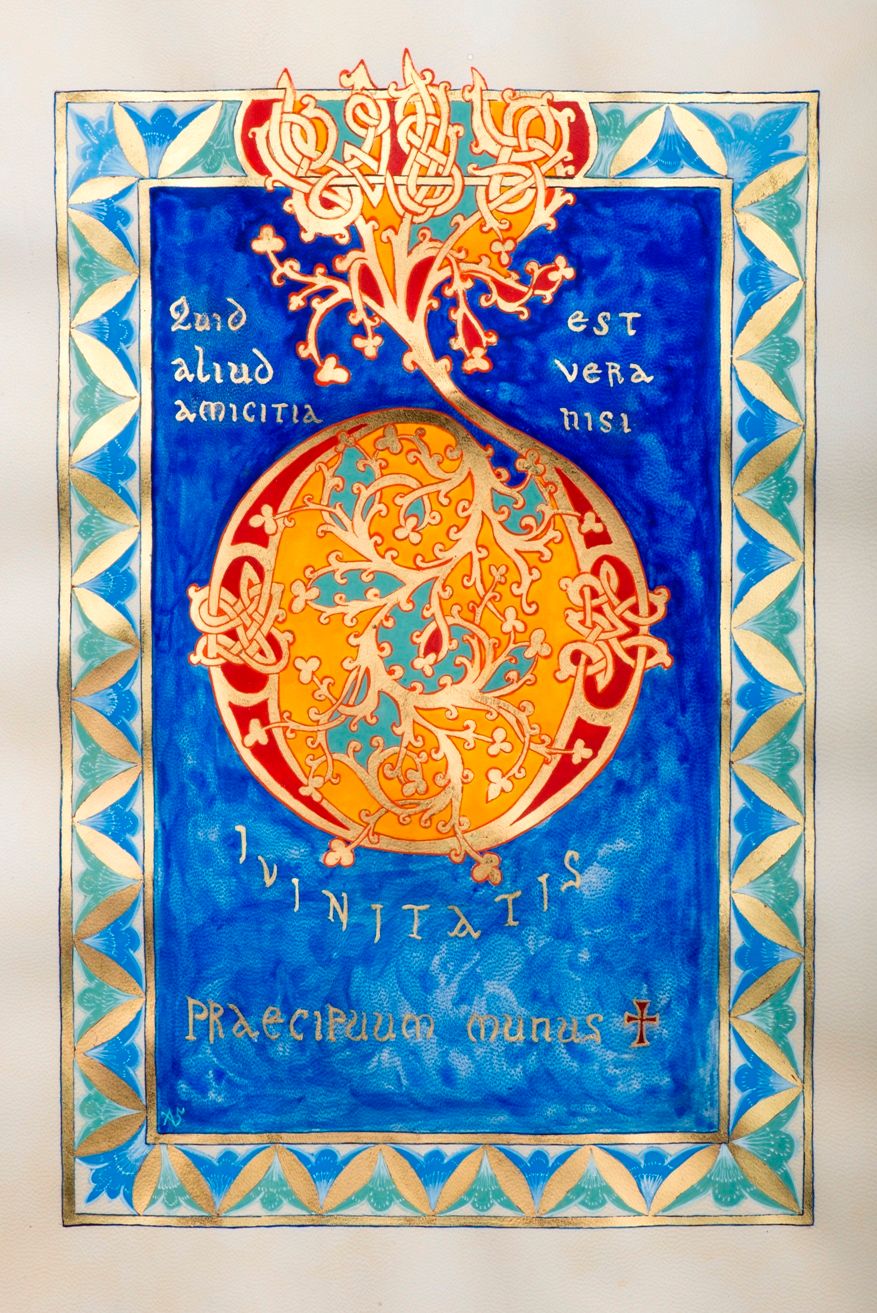 Quid est
aliud vera
amicitia nisi
DIVINITATIS
praecipuum munus ✠